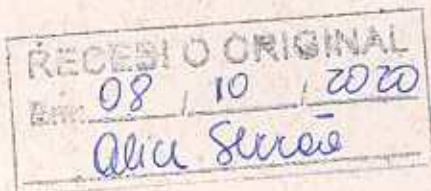 RECEBI O ORIGINAL
Em: 08 / 10 / 2020
Alice Serrão